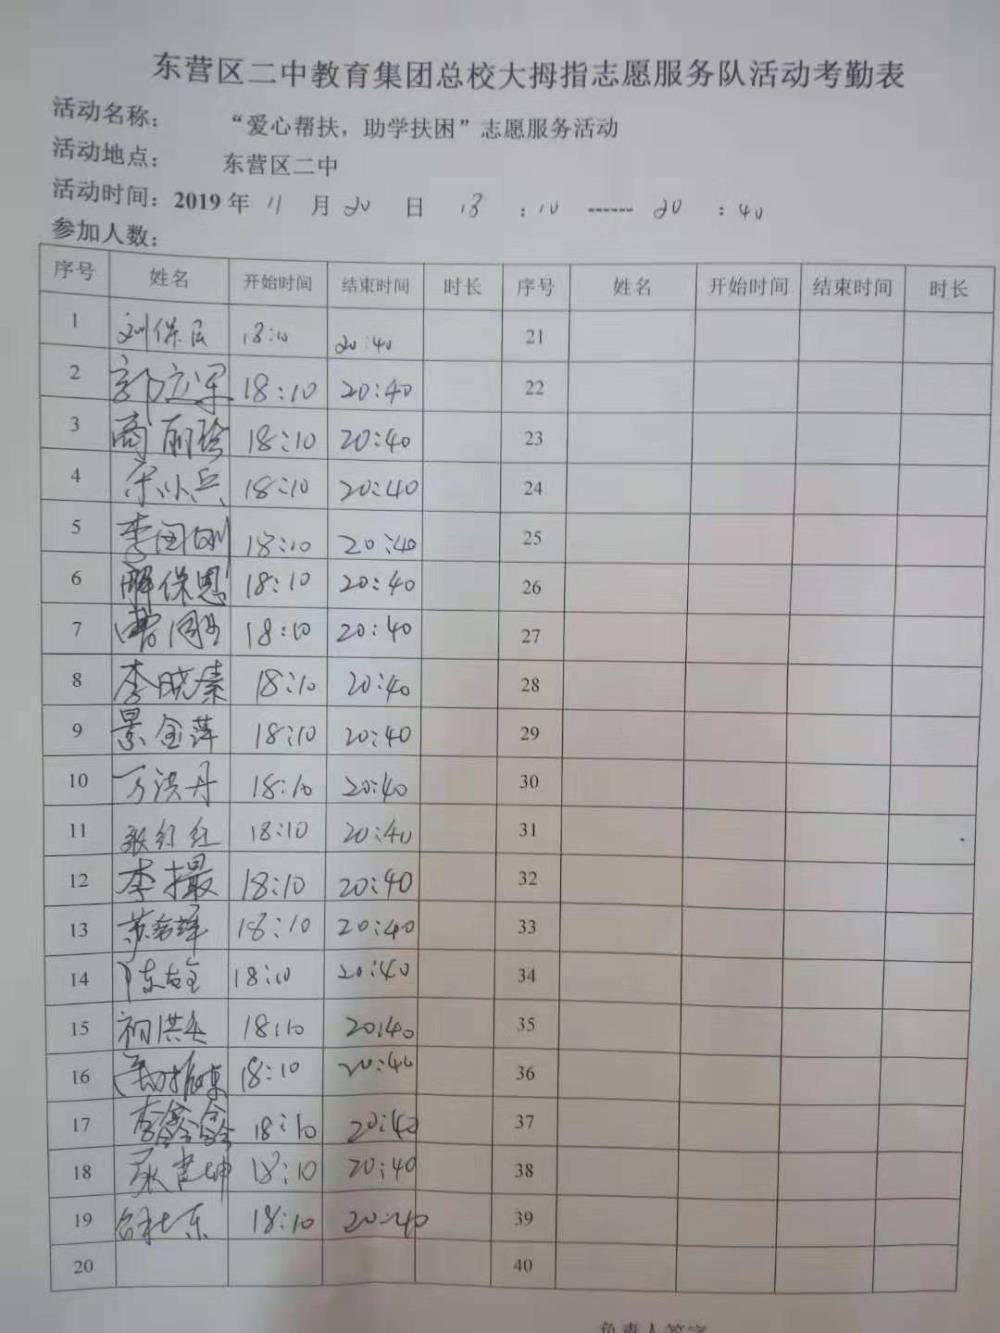 东营区二中教育集团总校大拇指志愿服务队活动考勤表
活动名称： “爱心帮扶，助学扶困”志愿服务活动
活动地点： 东营区二中
活动时间：2019 年 11 月 20 日 18 : 10 ------ 20 : 40
参加人数：
序号 姓名 开始时间 结束时间 时长 序号 姓名 开始时间 结束时间 时长
1 刘保民 18:10 20:40 21
2 郭立军 18:10 20:40 22
3 商丽珍 18:10 20:40 23
4 宋小兵 18:10 20:40 24
5 李国刚 18:10 20:40 25
6 解保恩 18:10 20:40 26
7 18:10 20:40 27
8 李晓秦 18:10 20:40 28
9 景金萍 18:10 20:40 29
10 万洪丹 18:10 20:40 30
11 张红红 18:10 20:40 31
12 李撮 18:10 20:40 32
13 18:10 20:40 33
14 18:10 20:40 34
15 18:10 20:40 35
16 18:10 20:40 36
17 李鑫 18:10 20:40 37
18 18:10 20:40 38
19 18:10 20:40 39
20 40
负责人签字